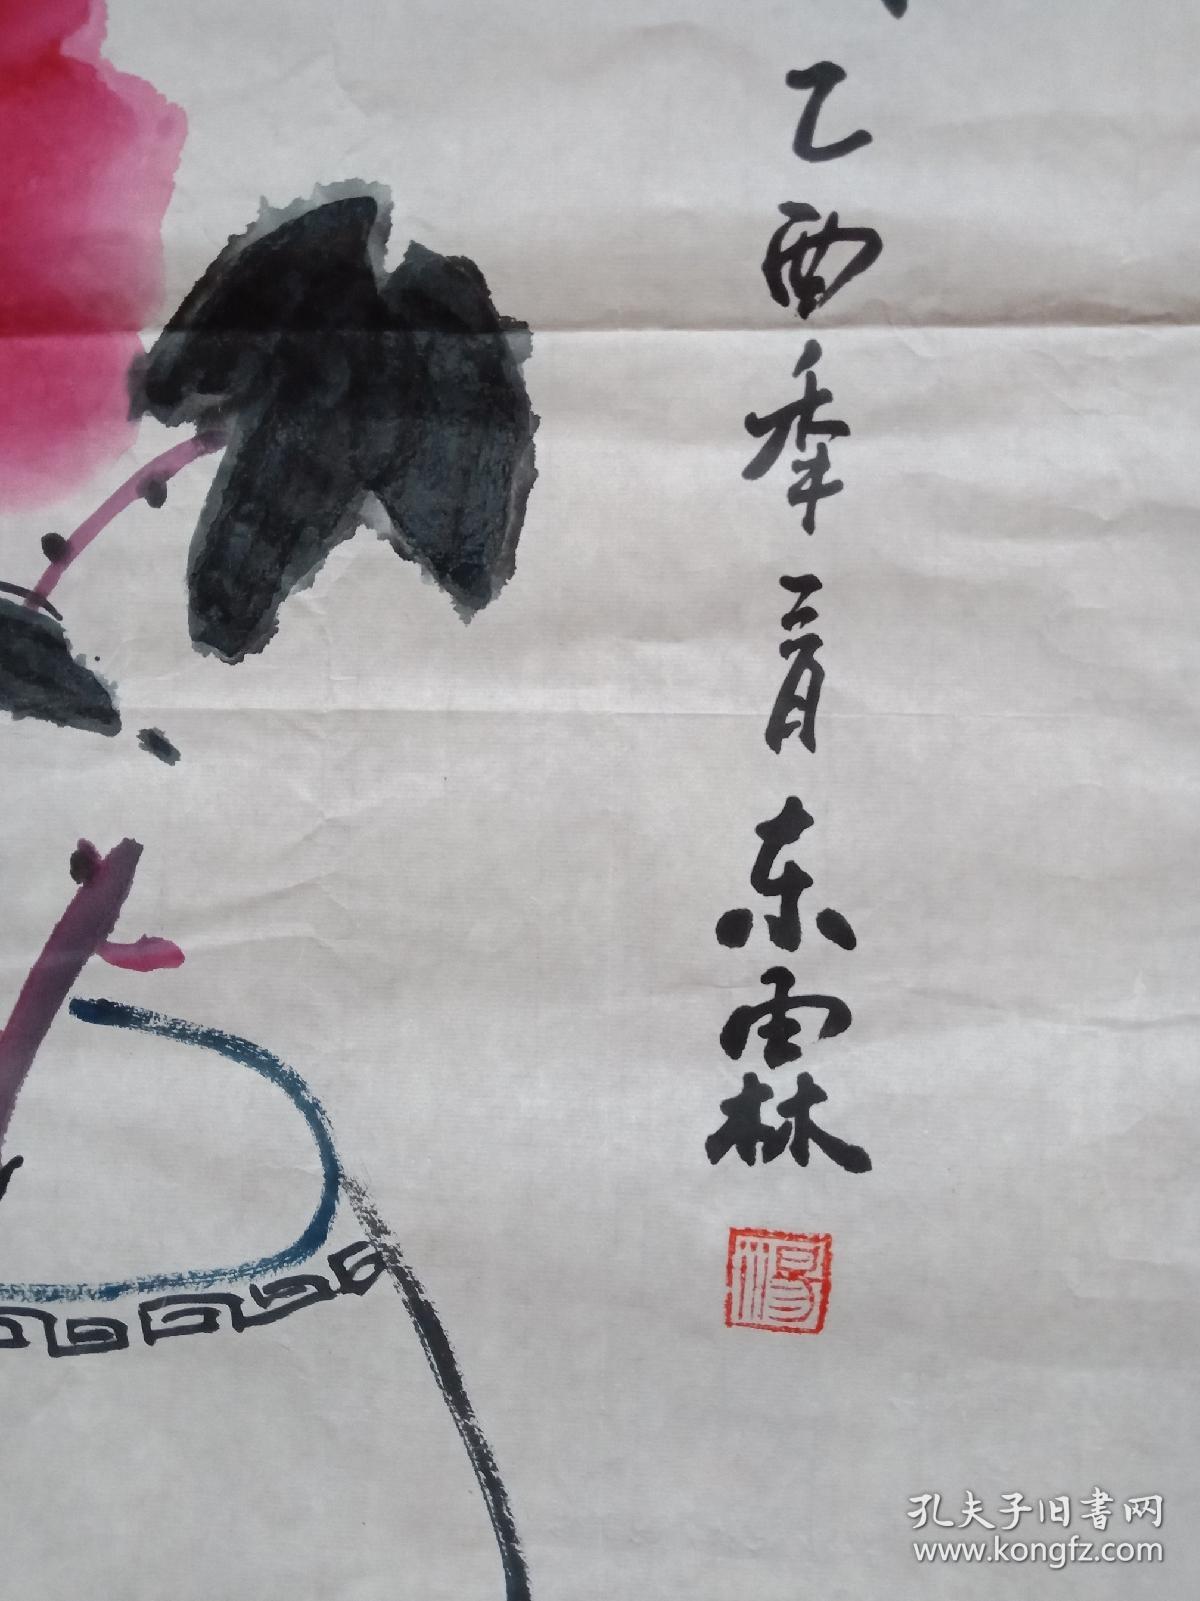 乙酉年二月东霖
孔夫子旧书网
www.kongfz.com